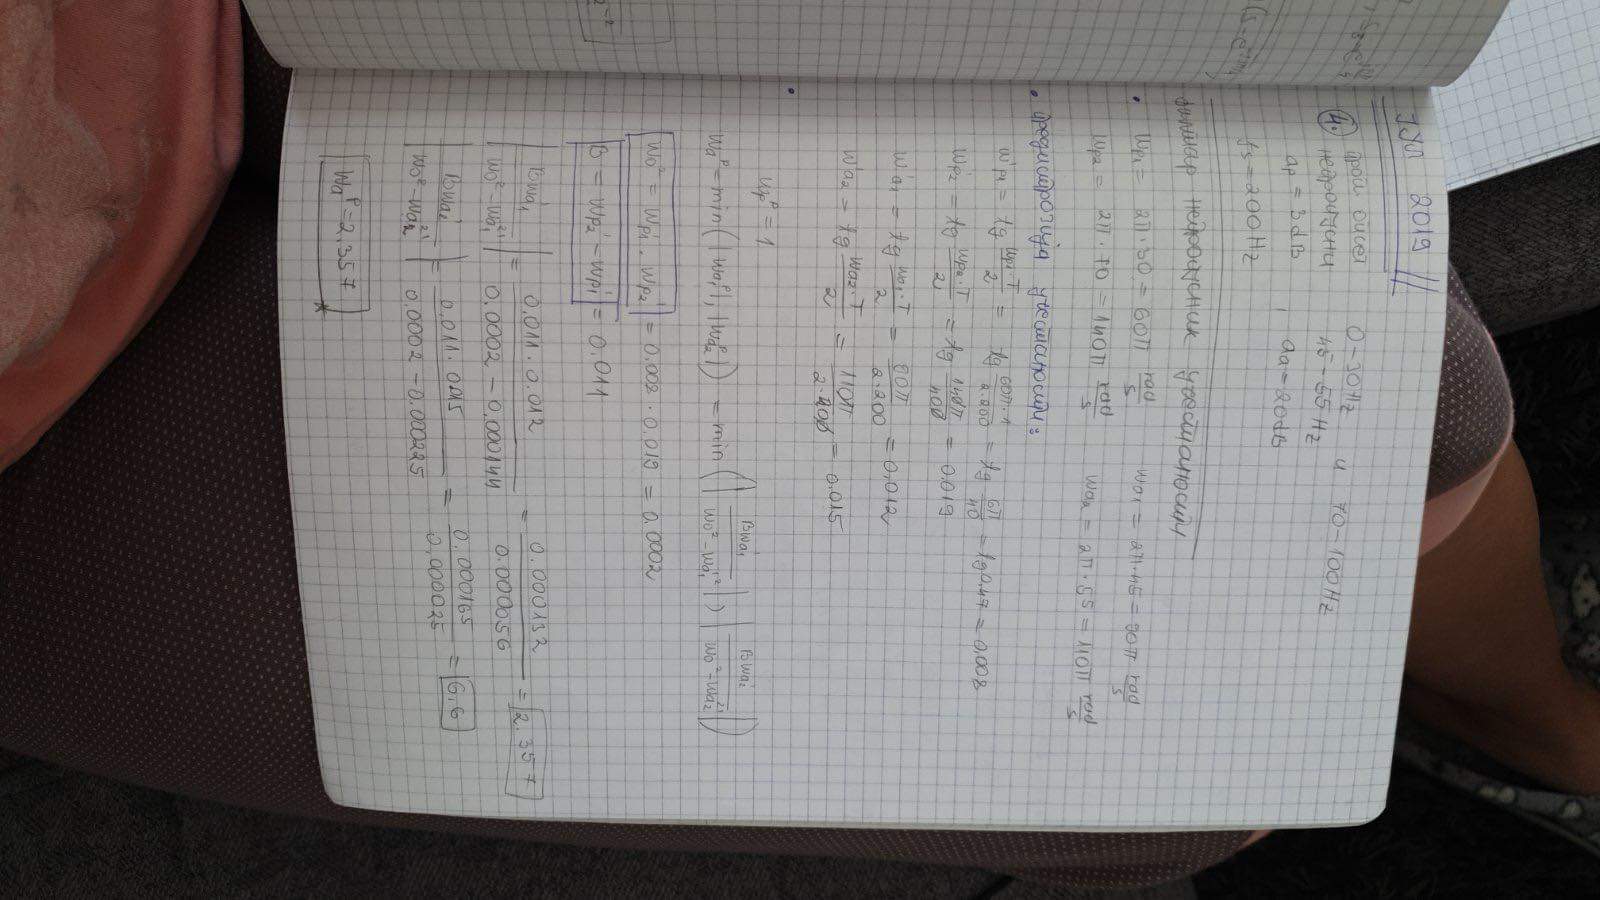 ЈУЛ 2019
4. проп. опсег 0-30Hz и 70-100Hz
непропусни 45-55Hz
ap = 3dB , aa = 20dB
fs = 200Hz
филтар непропусник учестаности
• Wp1 = 2π·30 = 60π rad/s Wa1 = 2π·45 = 90π rad/s
Wp2 = 2π·70 = 140π rad/s Wa2 = 2π·55 = 110π rad/s
• предисторзија учестаности:
W'p1 = tg Wp1·T/2 = tg 60π·1/2·200 = tg 6π/40 = tg 0.47 = 0.008
W'p2 = tg Wp2·T/2 = tg 140π/400 = 0.019
W'a1 = tg Wa1·T/2 = 90π/2·200 = 0,012
W'a2 = tg Wa2·T/2 = 110π/2·400 = 0.015
•
Wpᴾ = 1
Waᴾ = min(|Wa1ᴾ|, |Wa2ᴾ|) = min(|BWa1'/W0²-Wa1'²|, |BWa2'/W0²-Wa2'²|)
W0² = Wp1'·Wp2' = 0.002·0.019 = 0.0002
B = Wp2' - Wp1' = 0.011
|BWa1'/W0²-Wa1'²| = 0,011·0.012/0.0002-0,000144 = 0.000132/0.000056 = 2.357
|BWa2'/W0²-Wa2'²| = 0.011·0.015/0.0002-0.000225 = 0.000165/0,000025 = 6,6
Waᴾ = 2,357 *